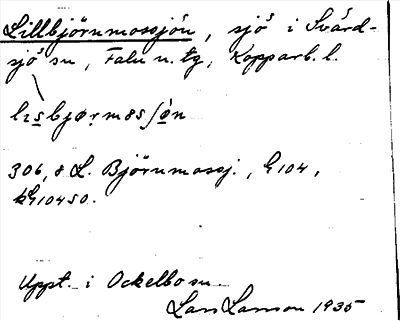 Lillbjörnmossjön, sjö i Svärd-
sjö sn, Falu n. tg, Kopparb. l.
306,8 L. Björnmossj., G104,
kG10450.
Uppt. i Ockelbo sn
Lars Larsson 1935